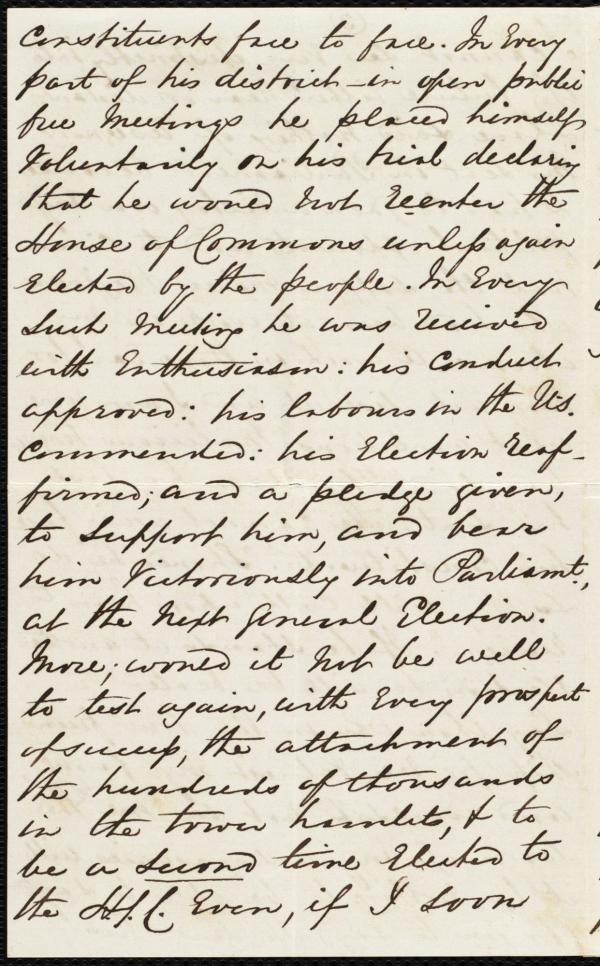 constituents face to face. In Every
part of his district - in open public
free Meetings he placed himself
Voluntarily on his trial declaring
that he would not reenter the
House of Commons unless again
Elected by the people. In Every
such Meeting he was received
with Enthusiasm: his Conduct
approved: his labours in the U.S.
Commended: his Election reaf-
firmed; and a pledge given,
to support him, and bear
him Victoriously into Parliamt.,
at the next General Election.
More; would it not be well
to test again, with Every prospect
of success, the attachment of
the hundreds of thousands
in the tower hamlets, & to
be a second time Elected to
the H.f.C. Even, if I soon